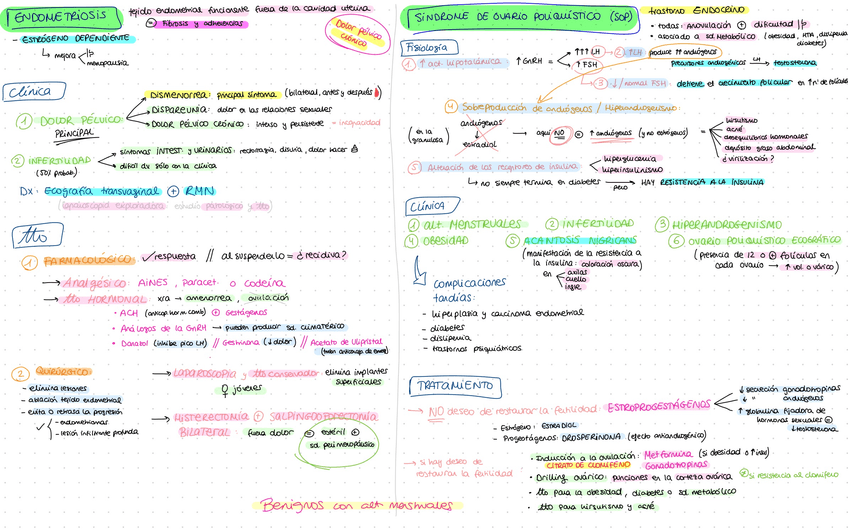 ENDOMETRIOSIS
tejido endometrial funcionante fuera de la cavidad uterina
= Fibrosis y adherencias
DOLOR PÉLVICO CRÓNICO
- ESTRÓGENO DEPENDIENTE
mejora
menopausia
Clínica
① DOLOR PÉLVICO:
PRINCIPAL
DISMENORREA: principal síntoma (bilateral, antes y después)
DISPAREUNIA: dolor en las relaciones sexuales
DOLOR PÉLVICO CRÓNICO: intenso y persistente - incapacidad
② INFERTILIDAD
síntomas INTEST. y URINARIOS: rectorragia, disuria, dolor hacer
difícil dx sólo con la clínica
Dx: Ecografía transvaginal ⊕ RMN
(laparoscopia exploradora estudio patológico y tto)
tto
① FARMACOLÓGICO: ✓ respuesta // al suspenderlo = ¿recidiva?
→ Analgésico: AINES, paracet. o codeína
→ tto HORMONAL: xra → amenorrea, ovulación
• ACH (anticop horm comb) ⊕ Gestágenos
• Análogos de la GnRH → pueden producir sd. climatérico
• Danazol (inhibe pico LH) // Gestrinona (↓ dolor) // Acetato de Ulipristal
② QUIRÚRGICO
- elimina lesiones
- ablación tejido endometrial
- evita o retrasa la progresión
- endometriomas
- lesión infiltrante profunda
→ LAPAROSCOPIA y tto conservador: elimina implantes superficiales
♀ jóvenes
→ HISTERECTOMÍA ⊕ SALPINGOOFORECTOMÍA
BILATERAL: fuera dolor = estéril ⊕
sd. perimenopáusico
Benignos con alt menstruales
SÍNDROME DE OVARIO POLIQUÍSTICO (SOP)
trastorno ENDOCRINO
• todas: ANOVULACIÓN ⊕ dificultad
• asociado a sd. Metabólico (obesidad, HTA, dislipemia, diabetes)
Fisiología
① ↑ act. hipotalámica
↑ GnRH
↑↑↑ LH → ② ↑LH produce ↑↑ andrógenos
precursores androgénicos LH → testosterona
↑ FSH
③ ↓/normal FSH: detiene el crecimiento folicular en ↑ nº de folículos
④ Sobreproducción de andrógenos / Hiperandrogenismo:
(en la granulosa)
andrógenos
estradiol
→ aquí NO = ↑ andrógenos (y no estrógenos) =
hirsutismo
acné
desequilibrios hormonales
depósito graso abdominal
¿virilización?
⑤ Alteración de los receptores de insulina
hiperglucemia
hiperinsulinismo
→ no siempre termina en diabetes pero → HAY RESISTENCIA A LA INSULINA
CLÍNICA
① alt MENSTRUALES ② INFERTILIDAD ③ HIPERANDROGENISMO
④ OBESIDAD ⑤ ACANTOSIS NIGRICANS ⑥ OVARIO POLIQUÍSTICO ECOGRÁFICO
(manifestación de la resistencia a la insulina: coloración oscura)
en
axilas
cuello
ingle
(presencia de 12 o ⊕ folículos en cada ovario → ↑ vol. ovárico)
complicaciones tardías:
- hiperplasia y carcinoma endometrial
- diabetes
- dislipemia
- trastornos psiquiátricos
TRATAMIENTO
→ NO deseo de restaurar la fertilidad: ESTROPROGESTÁGENOS
↓ secreción gonadotropinas
↓ " andrógenos
↑ globulina fijadora de hormonas sexuales =
↓ testosterona
- Estrógeno: ESTRADIOL
- Progestágenos: DROSPERINONA (efecto antiandrogénico)
→ si hay deseo de restaurar la fertilidad
• Inducción a la ovulación: Metformina (si obesidad o ↑ins)
CITRATO DE CLOMIFENO Gonadotropinas
• Drilling ovárico: punciones en la corteza ovárica
si resistencia al clomifeno
• tto para la obesidad, diabetes o sd. metabólico
• tto para hirsutismo y acné